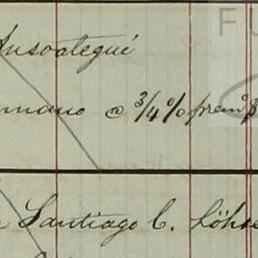 Ansoategui
@ 3/4 % prem°
Santiago C. Löhse